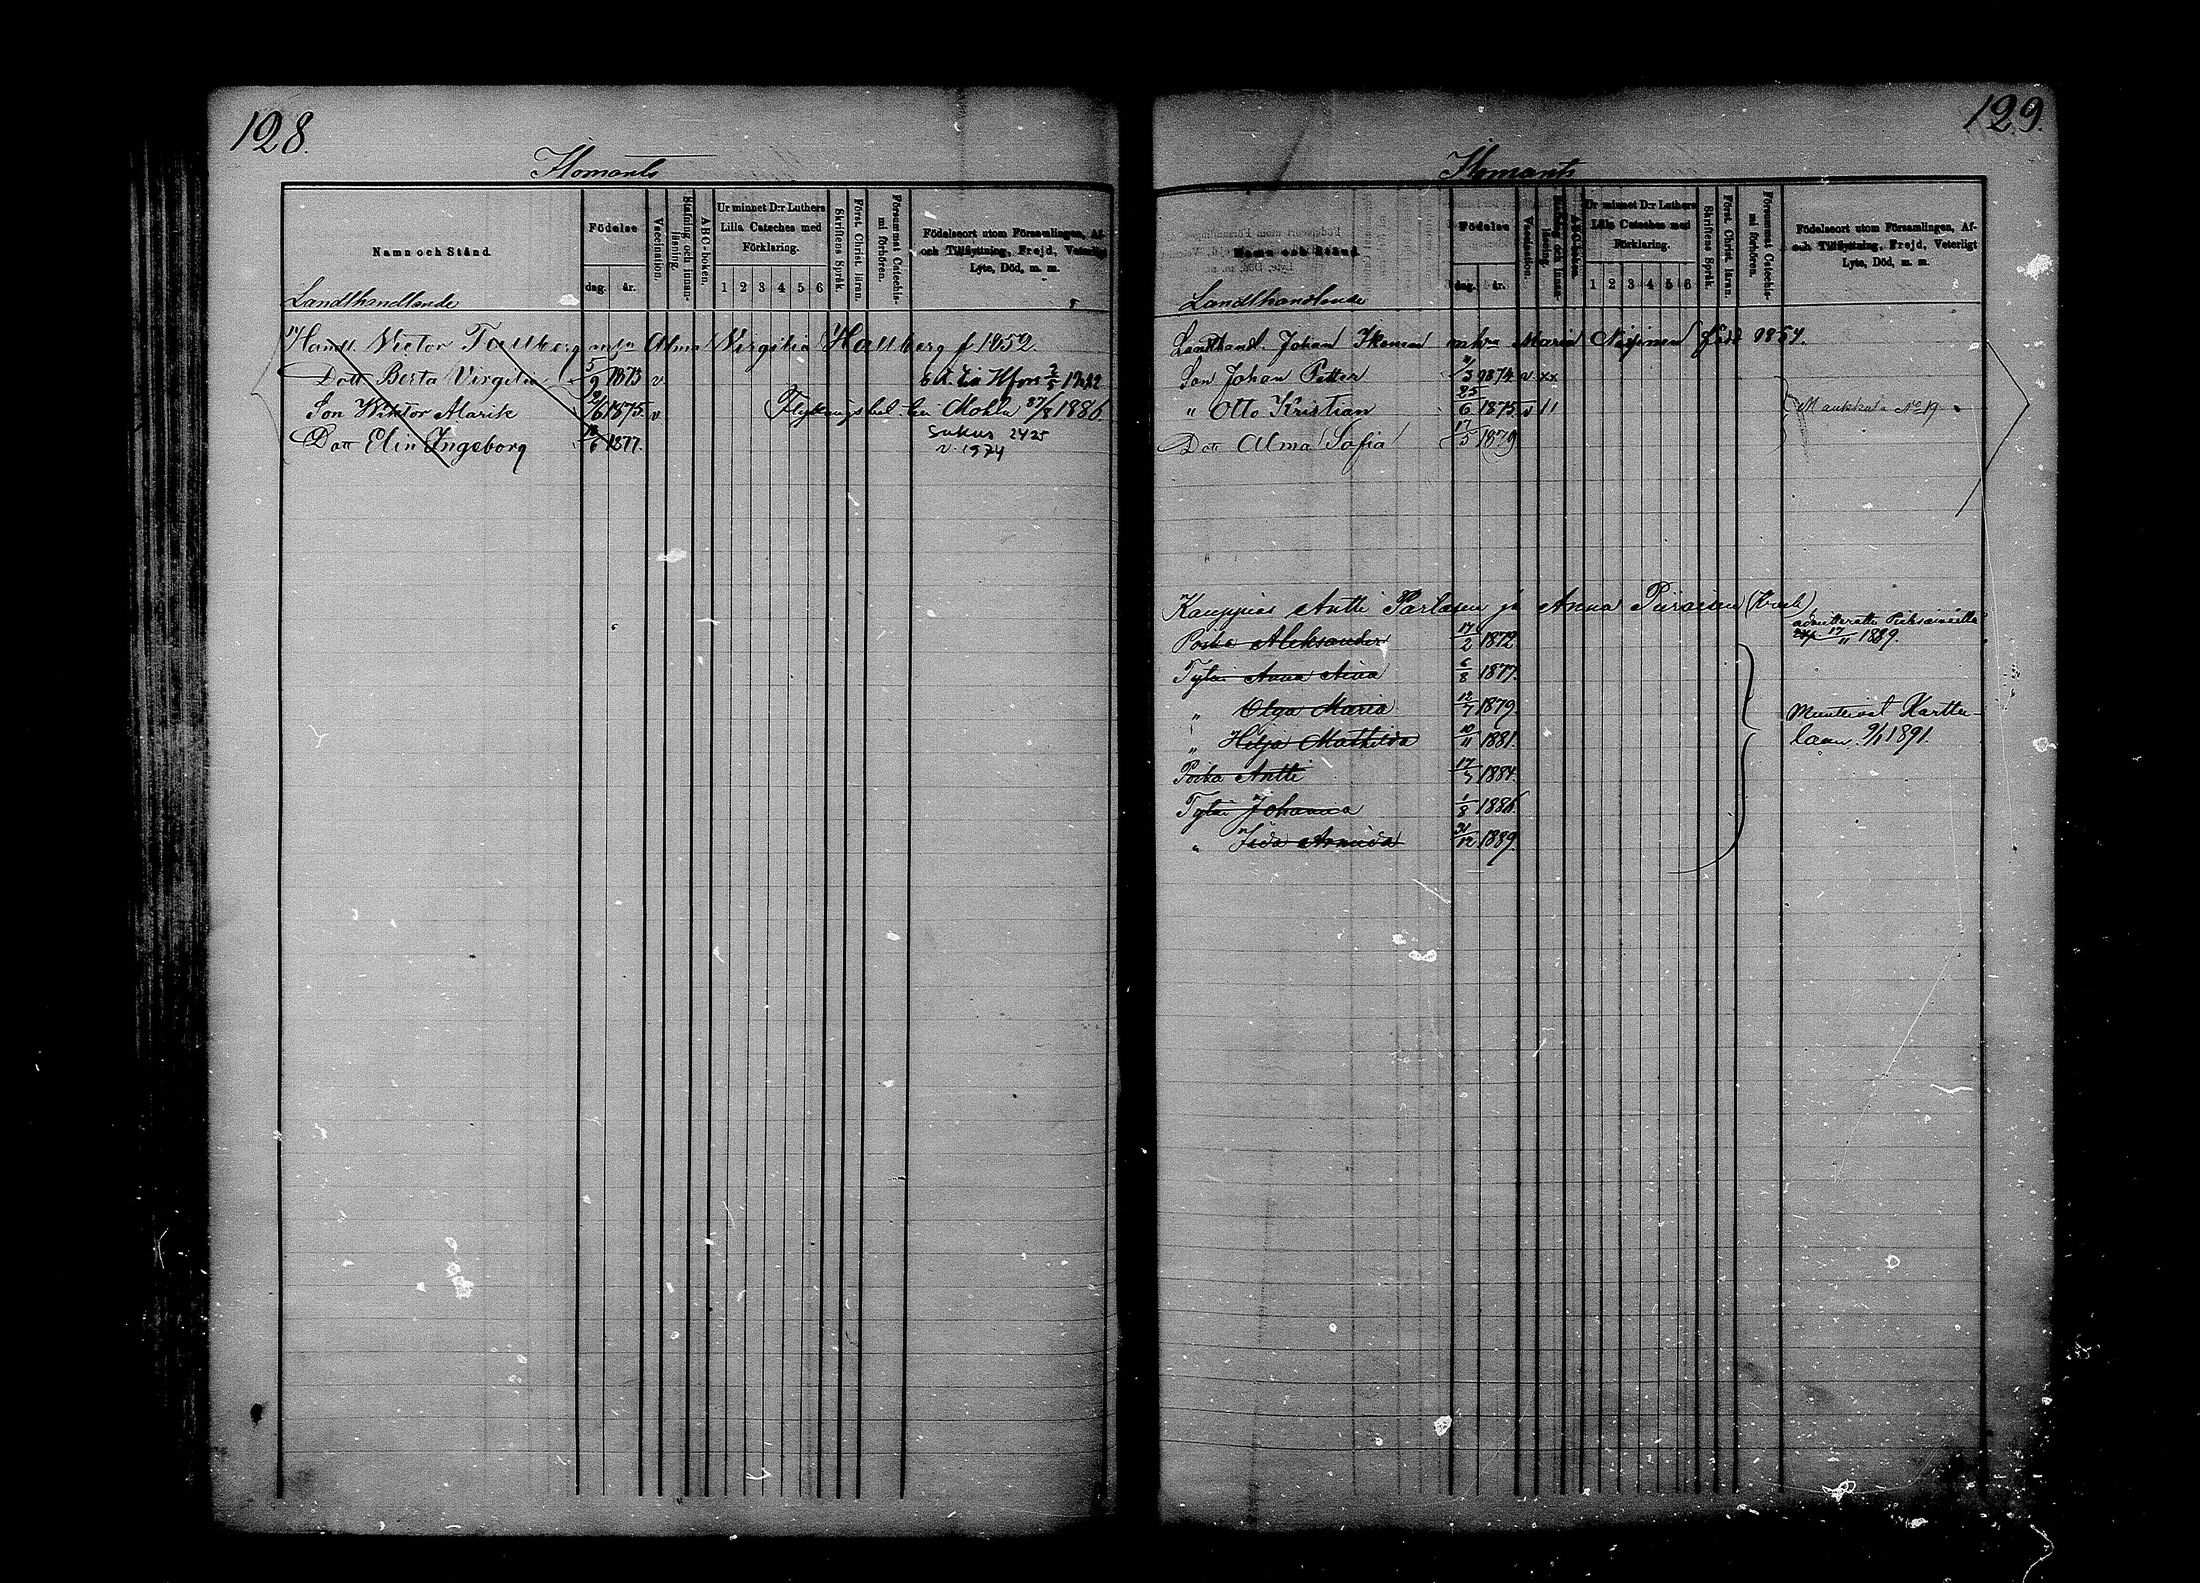 128.
Ilomants
Namn och Stånd
Födelse
dag. år.
Vaccination.
Stafning och innanläsning.
ABC-boken.
Ur minnet D:r Luthers Lilla Cateches med Förklaring.
1 2 3 4 5 6
Skriftens Språk
Först. Christ. läran.
Försummat Catechismi förhören.
Födelseort utom Församlingen, Af- och Tillflyttning, Frejd, Veterligt Lyte, Död, m. m.
Landthandlande
Handl. Victor Tallberg Alma Virgilia Hallberg f 1852
Dott Berta Virgilia 5/9 1873 v
Son Wiktor Alarik /6 1875. v Flyttningsbet. till Mohla 27/8 1886.
Dott Elin Ingeborg /6 1877.
Sukus 2425
v. 1974
129.
Ilomants
Namn och Stånd
Födelse
dag. år.
Vaccination.
Stafning och innanläsning.
ABC-boken.
Ur minnet D:r Luthers Lilla Cateches med Förklaring.
1 2 3 4 5 6
Skriftens Språk
Först. Christ. läran.
Försummat Catechismi förhören.
Födelseort utom Församlingen, Af- och Tillflyttning, Frejd, Veterligt Lyte, Död, m. m.
Landthandlande
Landthandl. Johan Ikonen Maria född 1854.
Son Johan Petter /3 1874 v xx
" Otto Kristian 25/6 1875. v 11 Maukkula No 19
Dott Alma Sofia 17/5 1879
Kauppias Antti Parlasen ja Anna Piirainen
Poika Aleksander 17/2 1872 17/11 1889.
Tytär Anna Aina 6/8 1877.
" Olga Maria 12/7 1879. Muuttivat Karttu-
" Hilja Mathilda 10/11 1881. laan 1891.
Poika Antti 17/7 1884.
Tytär Johanna 1/8 1886.
" Iida Armida 31/12 1889.